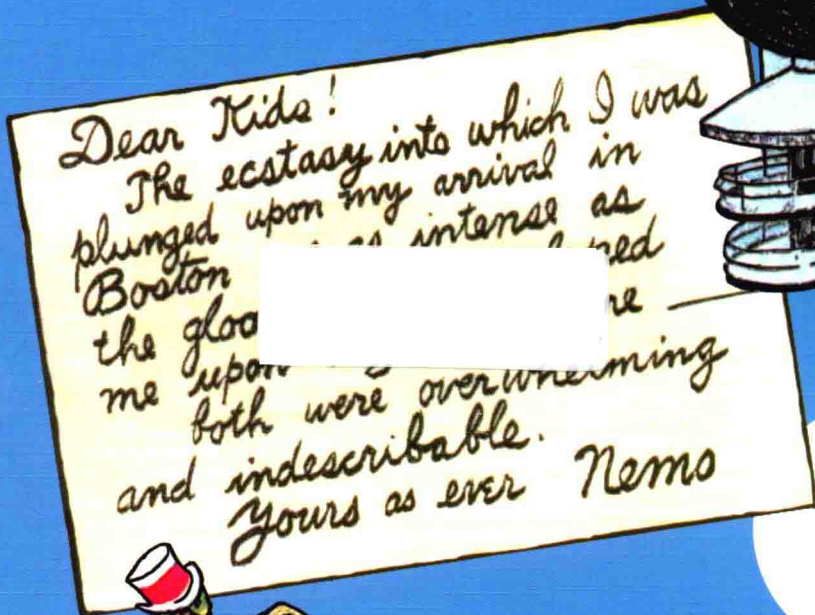 Dear Kids!
The ecstasy into which I was
plunged upon my arrival in
Boston as intense as
the
me upon
both were overwhelming
and indescribable.
Yours as ever Nemo